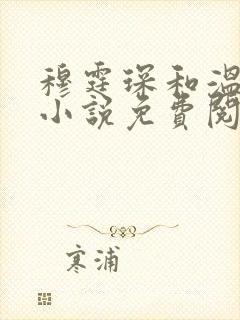 穆霆琛和温
小说免费阅
寒浦